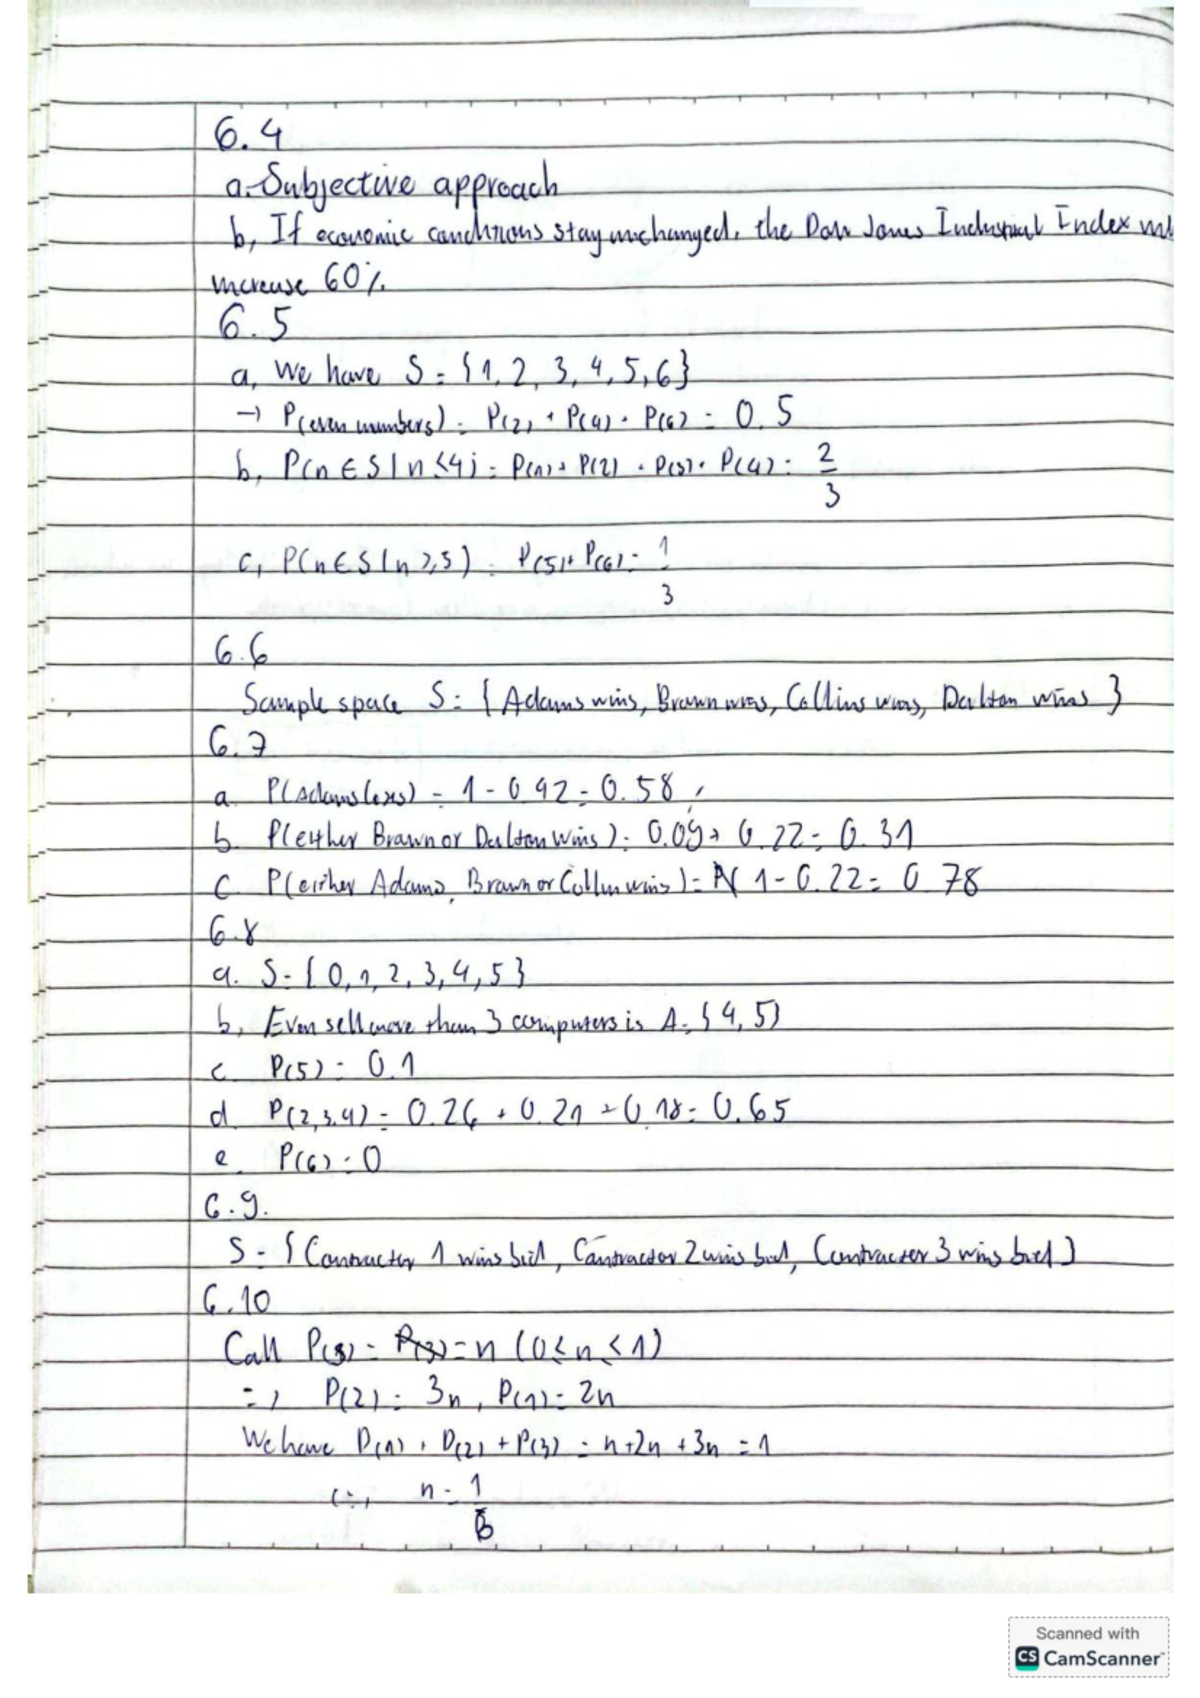 6.4
a. Subjective approach
b, If economic conditions stay unchanged, the Dow Jones Industrial Index
increase 60%
6.5
a, We have S = {1, 2, 3, 4, 5, 6}
→ P(even numbers) = P(2) + P(4) + P(6) = 0.5
b, P(n ∈ S | n ≤ 4) = P(1) + P(2) + P(3) + P(4) = 2/3
c, P(n ∈ S | n ≥ 5) = P(5) + P(6) = 1/3
6.6
Sample space S = { Adams wins, Brawn wins, Collins wins, Dalton wins }
6.7
a. P(Adams loses) = 1 - 0.42 = 0.58
b. P(either Brawn or Dalton wins) = 0.09 + 0.22 = 0.31
c. P(either Adams, Brawn or Collin wins) = 1 - 0.22 = 0.78
6.8
a. S = { 0, 1, 2, 3, 4, 5 }
b, Even sell more than 3 computers is A = { 4, 5 }
c. P(5) = 0.1
d. P(2,3,4) = 0.26 + 0.21 + 0.18 = 0.65
e. P(6) = 0
6.9.
S = { Contracter 1 wins bid, Contractor 2 wins bid, Contracter 3 wins bid }
6.10
Call P(3) = P(3) = n (0 ≤ n ≤ 1)
=> P(2) = 3n, P(1) = 2n
We have P(1) + P(2) + P(3) = n + 2n + 3n = 1
<=> n = 1/6
Scanned with
CS CamScanner